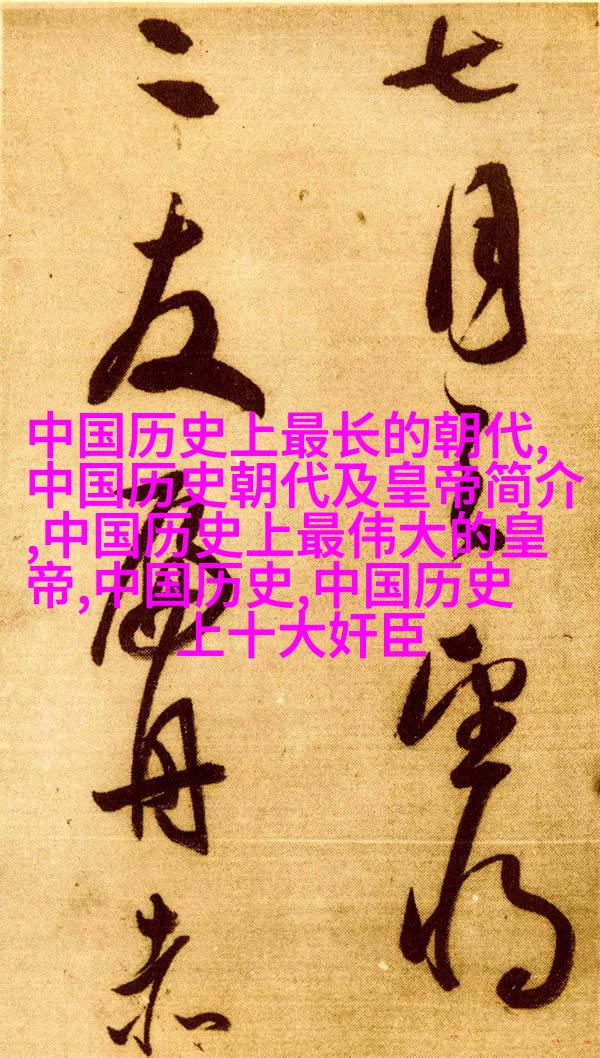 中国历史上最长的朝代,
中国历史朝代及皇帝简介
,中国历史上最伟大的皇
帝,中国历史,中国历史
上十大奸臣
七月望将
二友舟赤